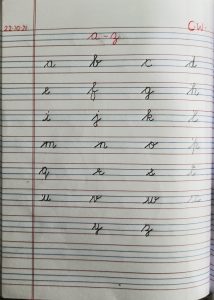 22-10-21 C.W.
a-z
a b c d
e f g h
i j k l
m n o p
q r s t
u v w x
y z